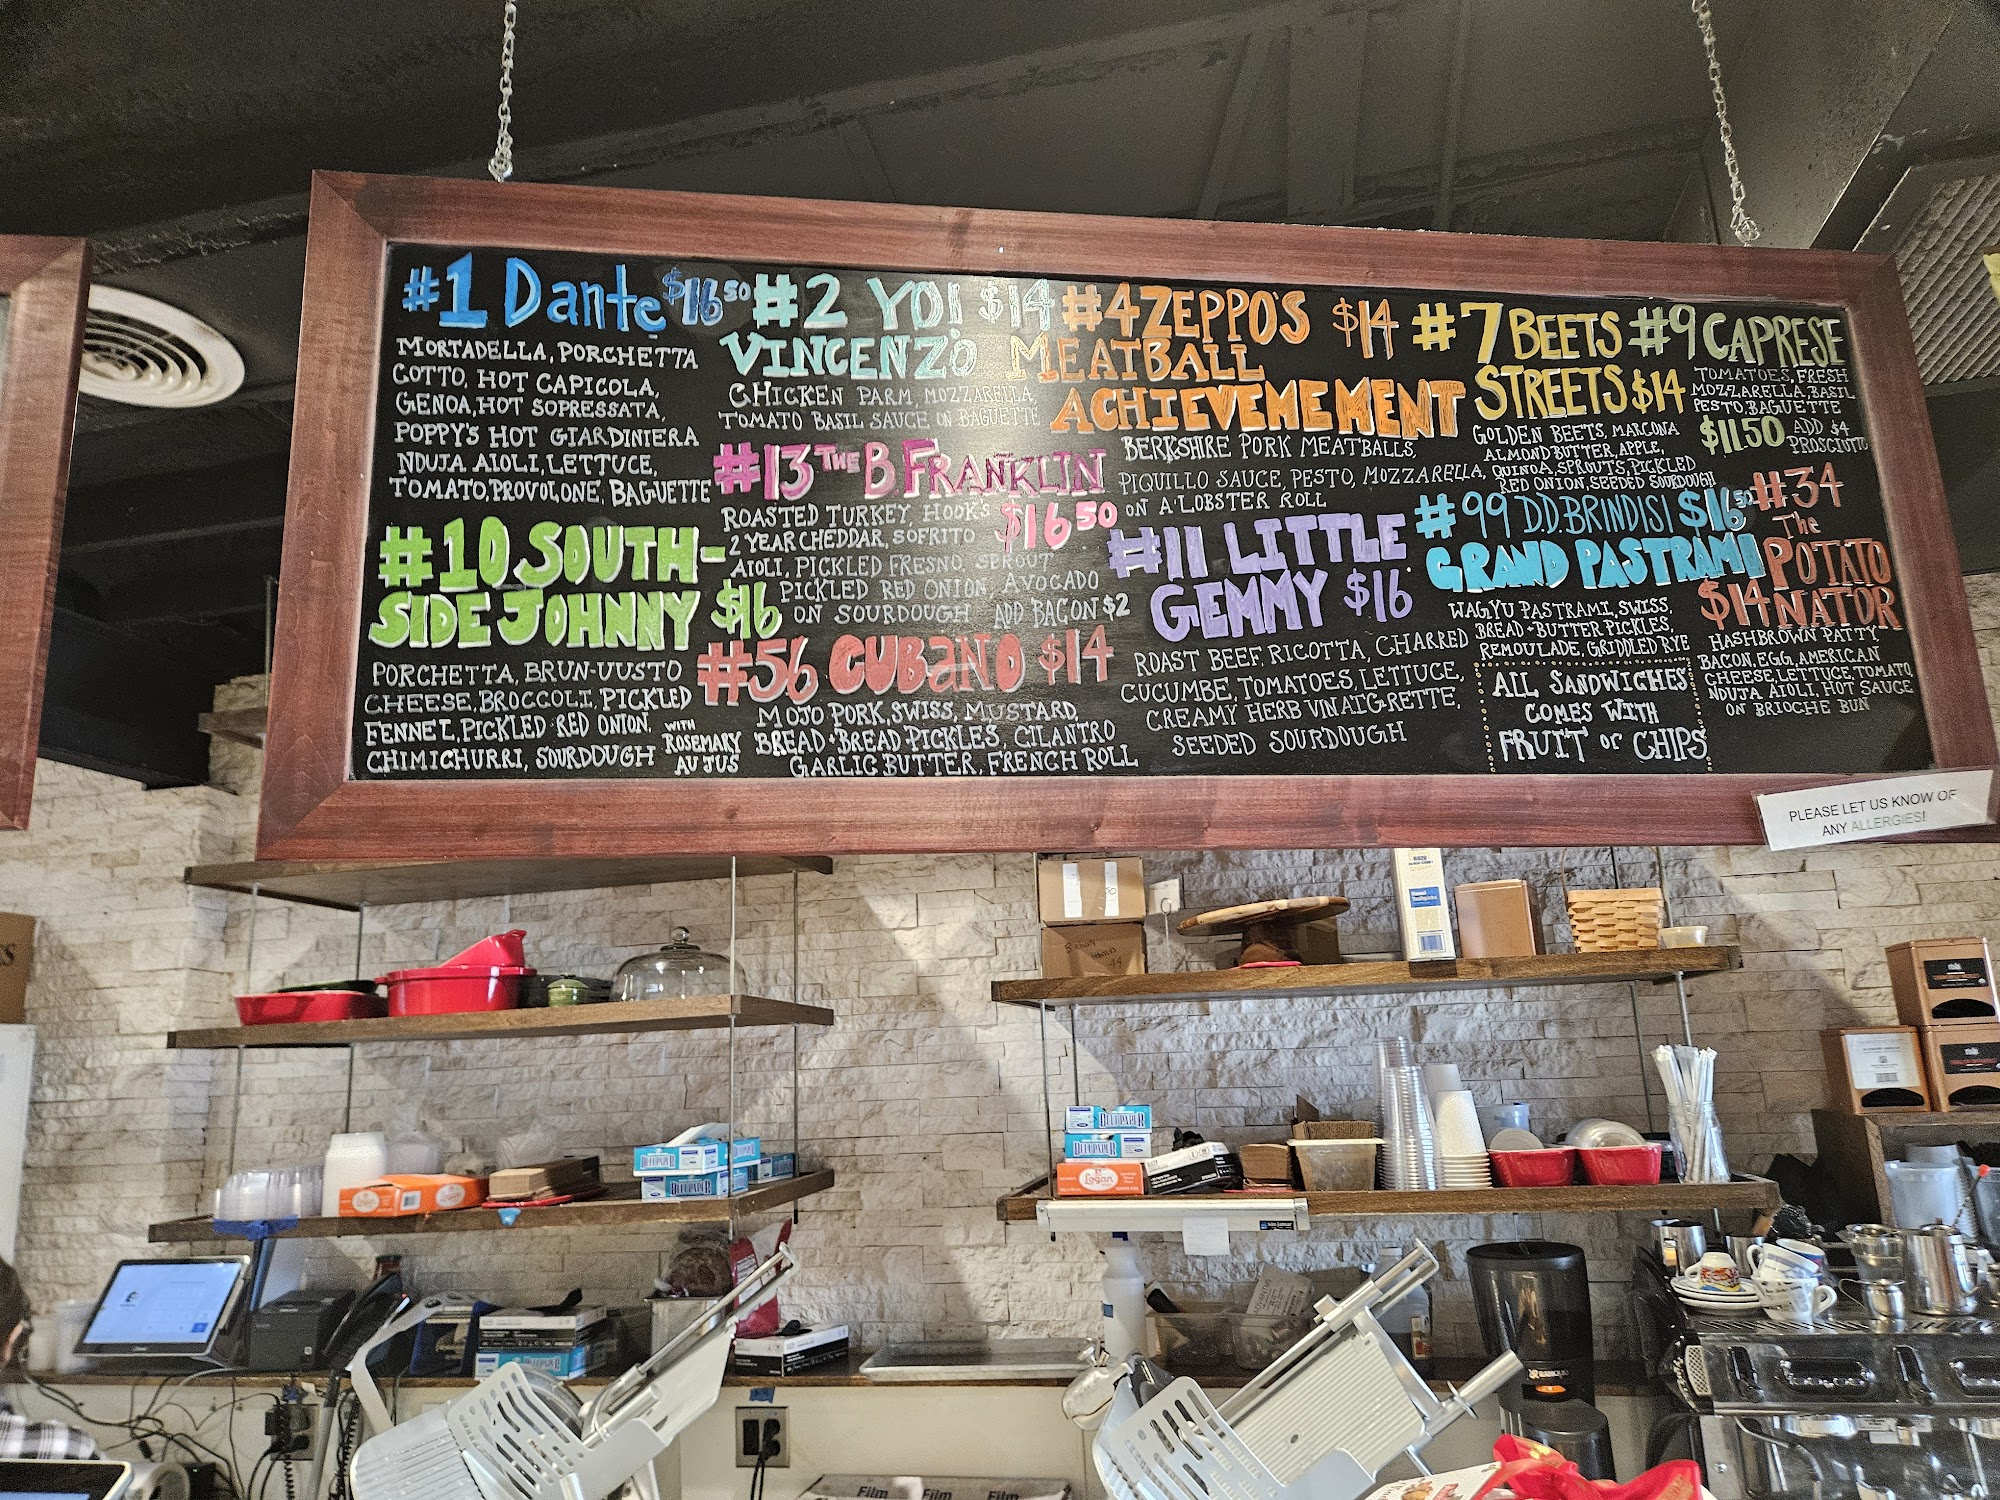 #1 Dante $16 50
MORTADELLA, PORCHETTA
COTTO, HOT CAPICOLA,
GENOA, HOT SOPRESSATA,
POPPY'S HOT GIARDINIERA
NDUJA AIOLI, LETTUCE,
TOMATO, PROVOLONE, BAGUETTE
#10 SOUTH-
SIDE JOHNNY $16
PORCHETTA, BRUN-UUSTO
CHEESE, BROCCOLI, PICKLED
FENNEL, PICKLED RED ONION,
CHIMICHURRI, SOURDOUGH
WITH
ROSEMARY
AU JUS
#2 YO! $14
VINCENZO
CHICKEN PARM, MOZZARELLA,
TOMATO BASIL SAUCE ON BAGUETTE
#13 THE B FRANKLIN
$16 50
ROASTED TURKEY, HOOK'S
2 YEAR CHEDDAR, SOFRITO
AIOLI, PICKLED FRESNO, SPROUT
PICKLED RED ONION, AVOCADO
ON SOURDOUGH ADD BACON $2
#56 CUBANO $14
MOJO PORK, SWISS, MUSTARD,
BREAD + BREAD PICKLES, CILANTRO
GARLIC BUTTER, FRENCH ROLL
#4 ZEPPO'S $14
MEATBALL
ACHIEVEMEMENT
BERKSHIRE PORK MEATBALLS,
PIQUILLO SAUCE, PESTO, MOZZARELLA,
ON A LOBSTER ROLL
#11 LITTLE
GEMMY $16
ROAST BEEF, RICOTTA, CHARRED
CUCUMBE, TOMATOES, LETTUCE,
CREAMY HERB VINAIGRETTE,
SEEDED SOURDOUGH
#7 BEETS
STREETS $14
GOLDEN BEETS, MARCONA
ALMOND BUTTER, APPLE,
QUINOA, SPROUTS, PICKLED
RED ONION, SEEDED SOURDOUGH
#99 D.D. BRINDISI $16 50
GRAND PASTRAMI
WAGYU PASTRAMI, SWISS,
BREAD + BUTTER PICKLES,
REMOULADE, GRIDDLED RYE
ALL SANDWICHES
COMES WITH
FRUIT or CHIPS
#9 CAPRESE
TOMATOES, FRESH
MOZZARELLA, BASIL
PESTO, BAGUETTE
$11.50 ADD $4
PROSCIUTTO
#34
The
POTATO
$14 NATOR
HASHBROWN PATTY,
BACON, EGG, AMERICAN
CHEESE, LETTUCE, TOMATO,
NDUJA AIOLI, HOT SAUCE
ON BRIOCHE BUN
PLEASE LET US KNOW OF
ANY ALLERGIES!
DELI PAPER
DELI PAPER
DELI PAPER
DELI PAPER
Logan
Film
Film
Film